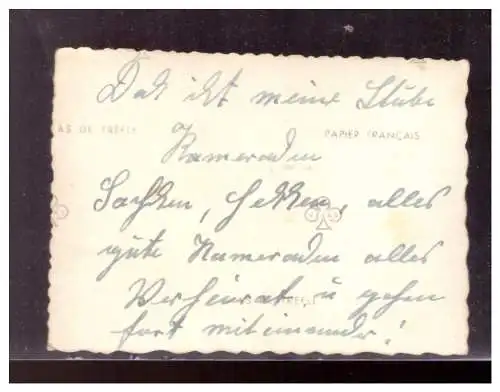 Das ist meine Stube
AS DE TREFLE
PAPIER FRANÇAIS
Kameraden
Sachsen, Hessen, alles
gute Kameraden alles
Verheirat, u gehen
fort miteinander!